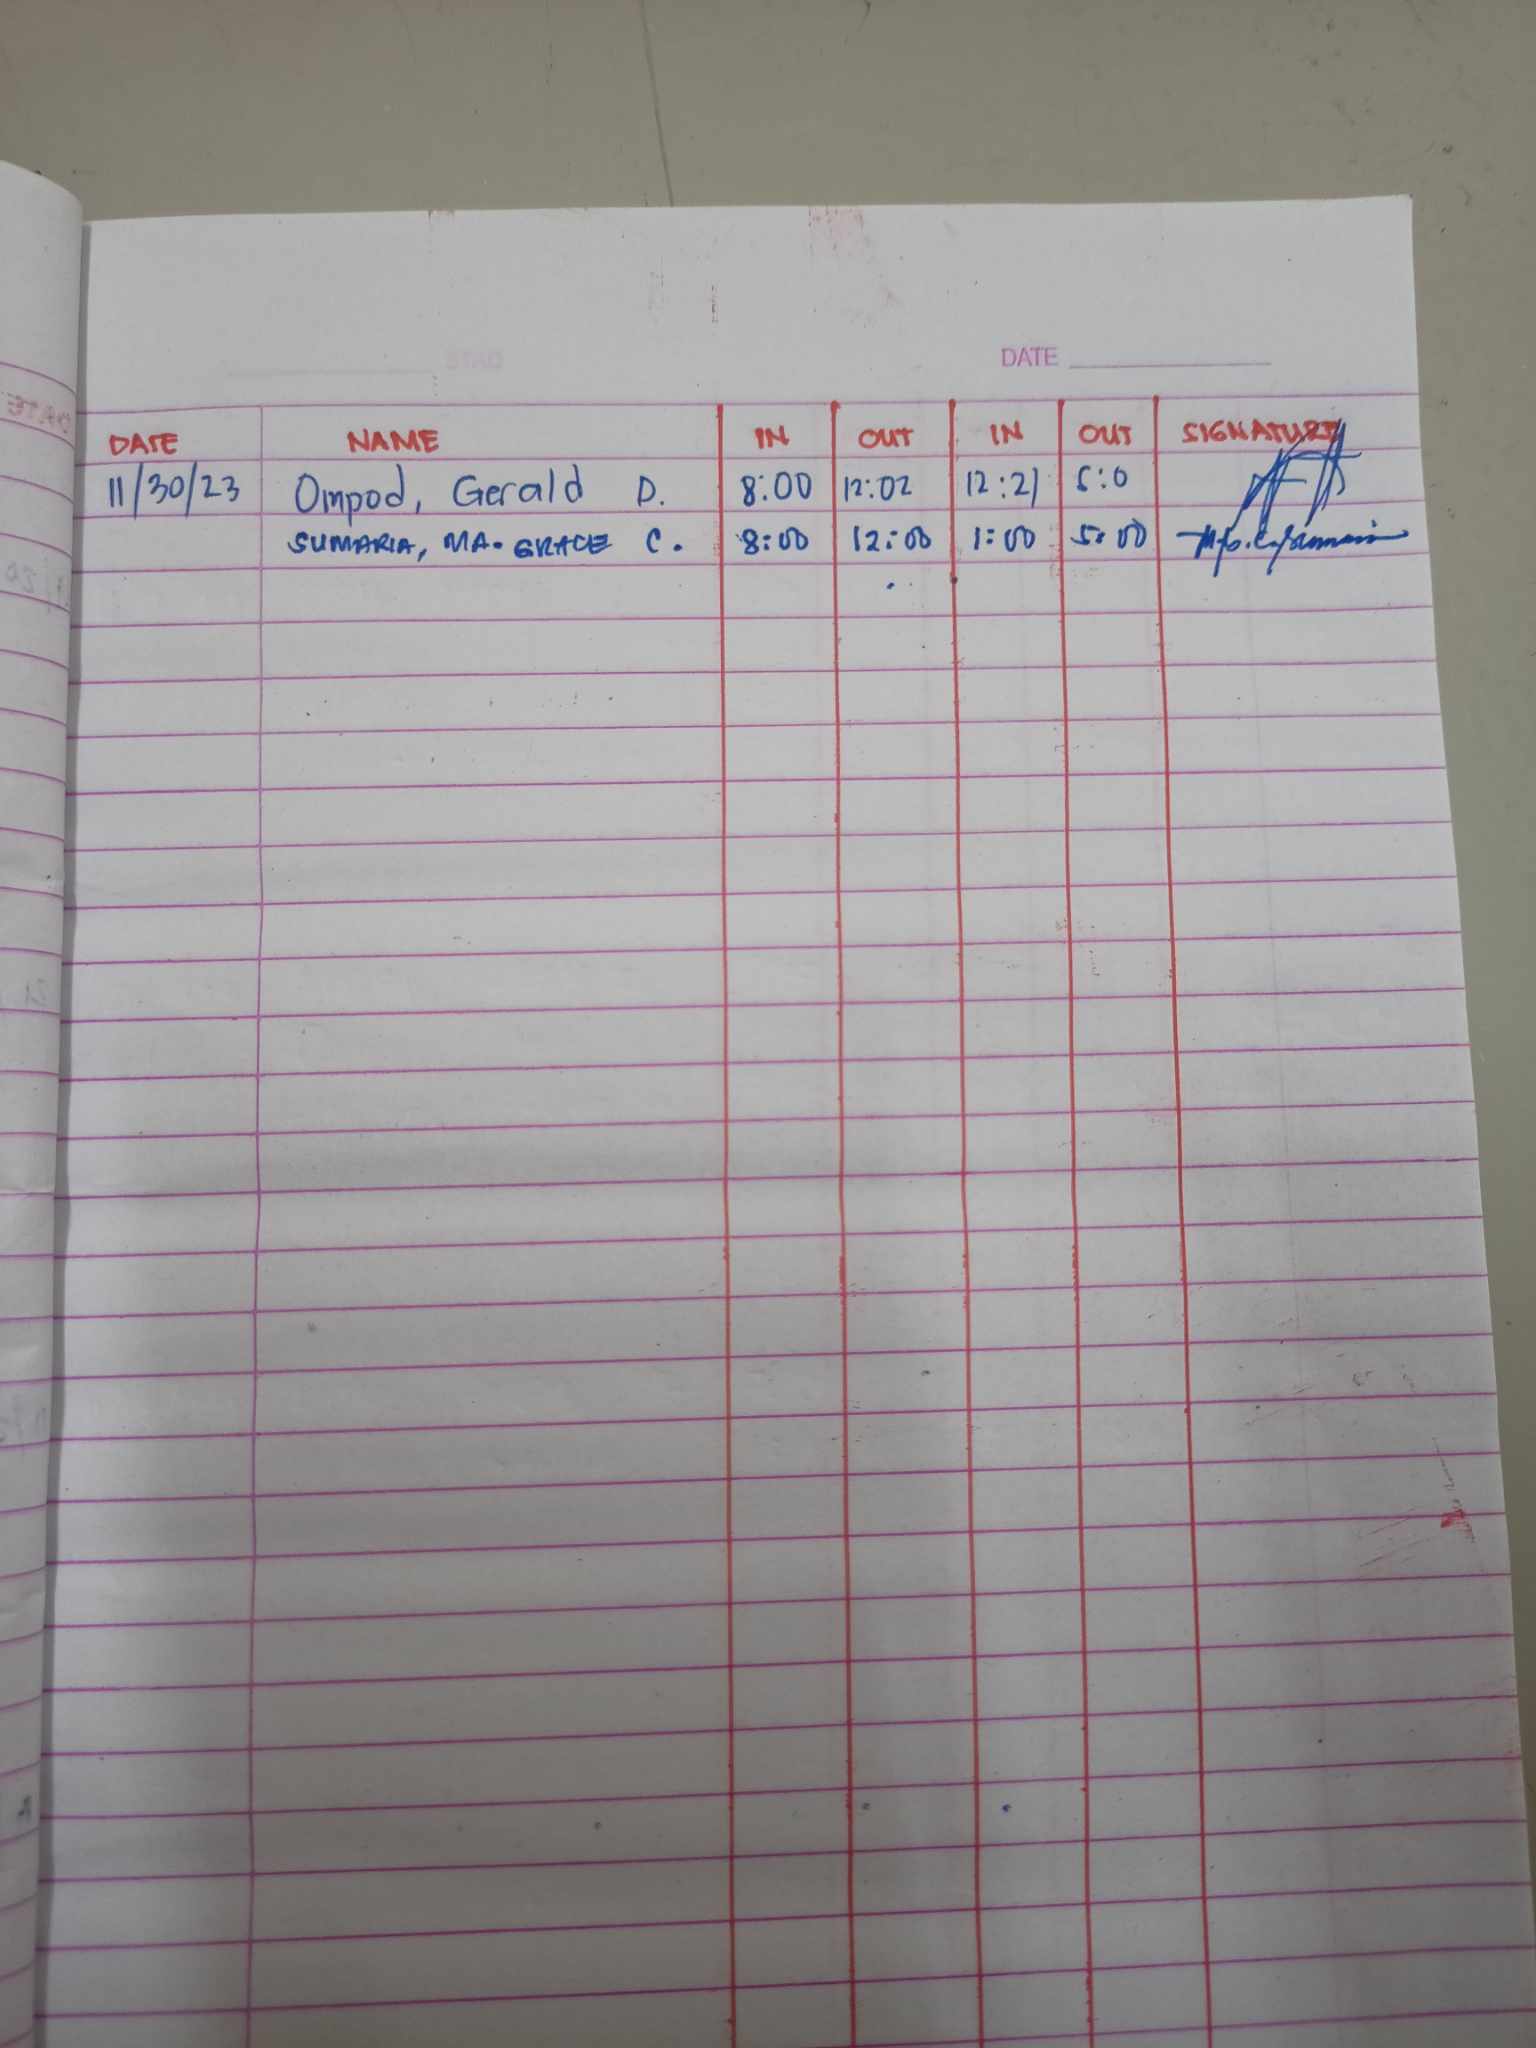 DATE
DATE NAME IN OUT IN OUT SIGNATURE
11/30/23 Ompod, Gerald D. 8:00 12:02 12:21 5:0
SUMARIA, MA. GRACE C. 8:00 12:00 1:00 5:00